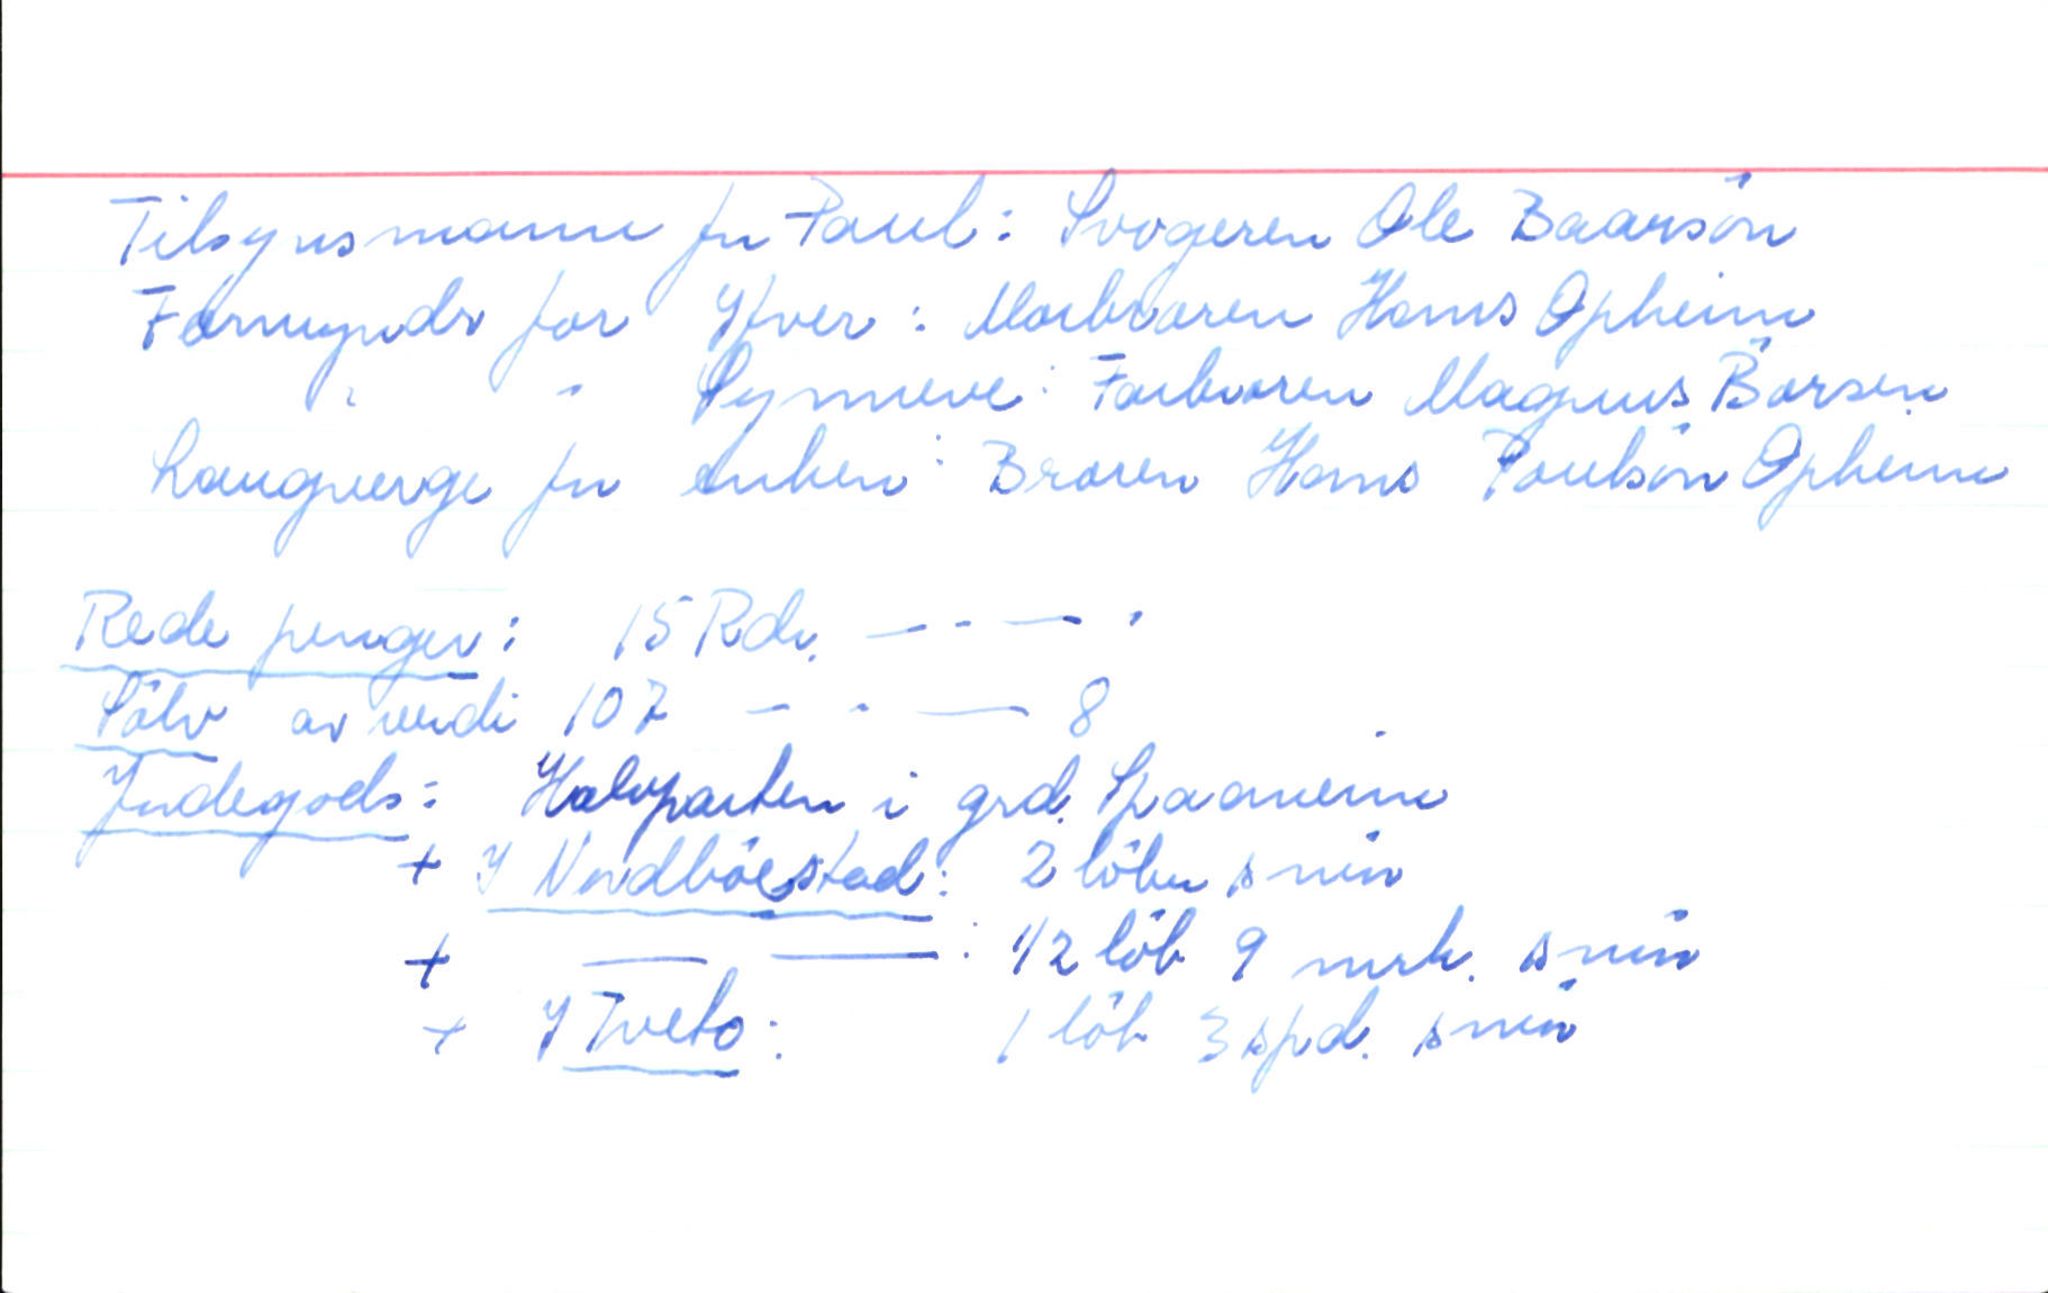 Tilsynsmann for Paul: Svogeren Ole Baarsön
Formyndr for Yver: Morbroren Hans Opheim
" " Synneve: Farbroren Magnus Börsen
Laugverge for enken: Broren Hans Poulsön Opheim
Rede penger: 15 Rdr. — - - — .
Sölv av verdi 107 — - — 8
Jndegods: Halvparten i grd. Spaaneim
+ Y Nordböestad: 2 löber smör
+ — —: 1/2 löb 9 mrk. smör
+ Y Tveto: 1 löb 3 spd. smör